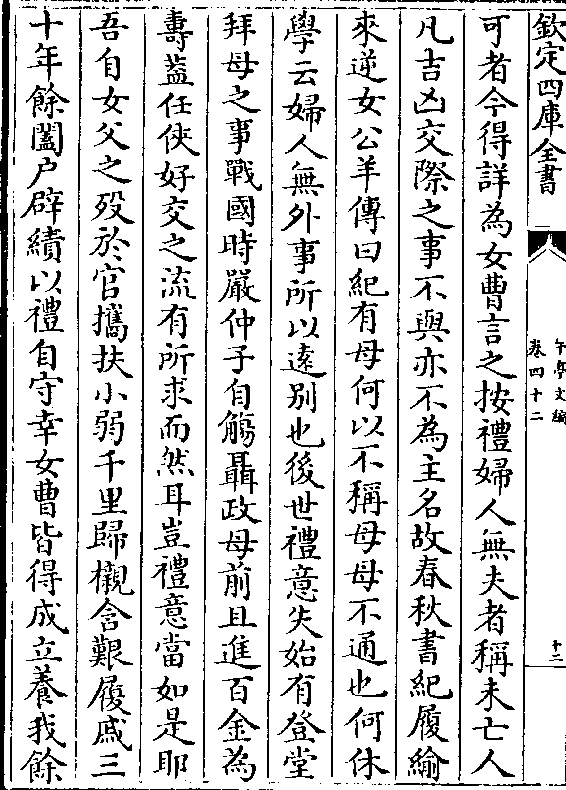 欽定四庫全書
午亭文編
卷四十二
十二
可者今得詳為女曹言之按禮婦人無夫者稱未亡人
凡吉凶交際之事不與亦不為主名故春秋書紀履緰
來逆女公羊傳曰紀有母何以不稱母母不通也何休
學云婦人無外事所以遠别也後世禮意失始有登堂
拜母之事戰國時嚴仲子自觴聶政母前且進百金為
壽葢任俠好交之流有所求而然耳豈禮意當如是耶
吾自女父之殁於官攜扶小弱千里歸櫬含艱履戚三
十年餘闔户辟績以禮自守幸女曹皆得成立養我餘